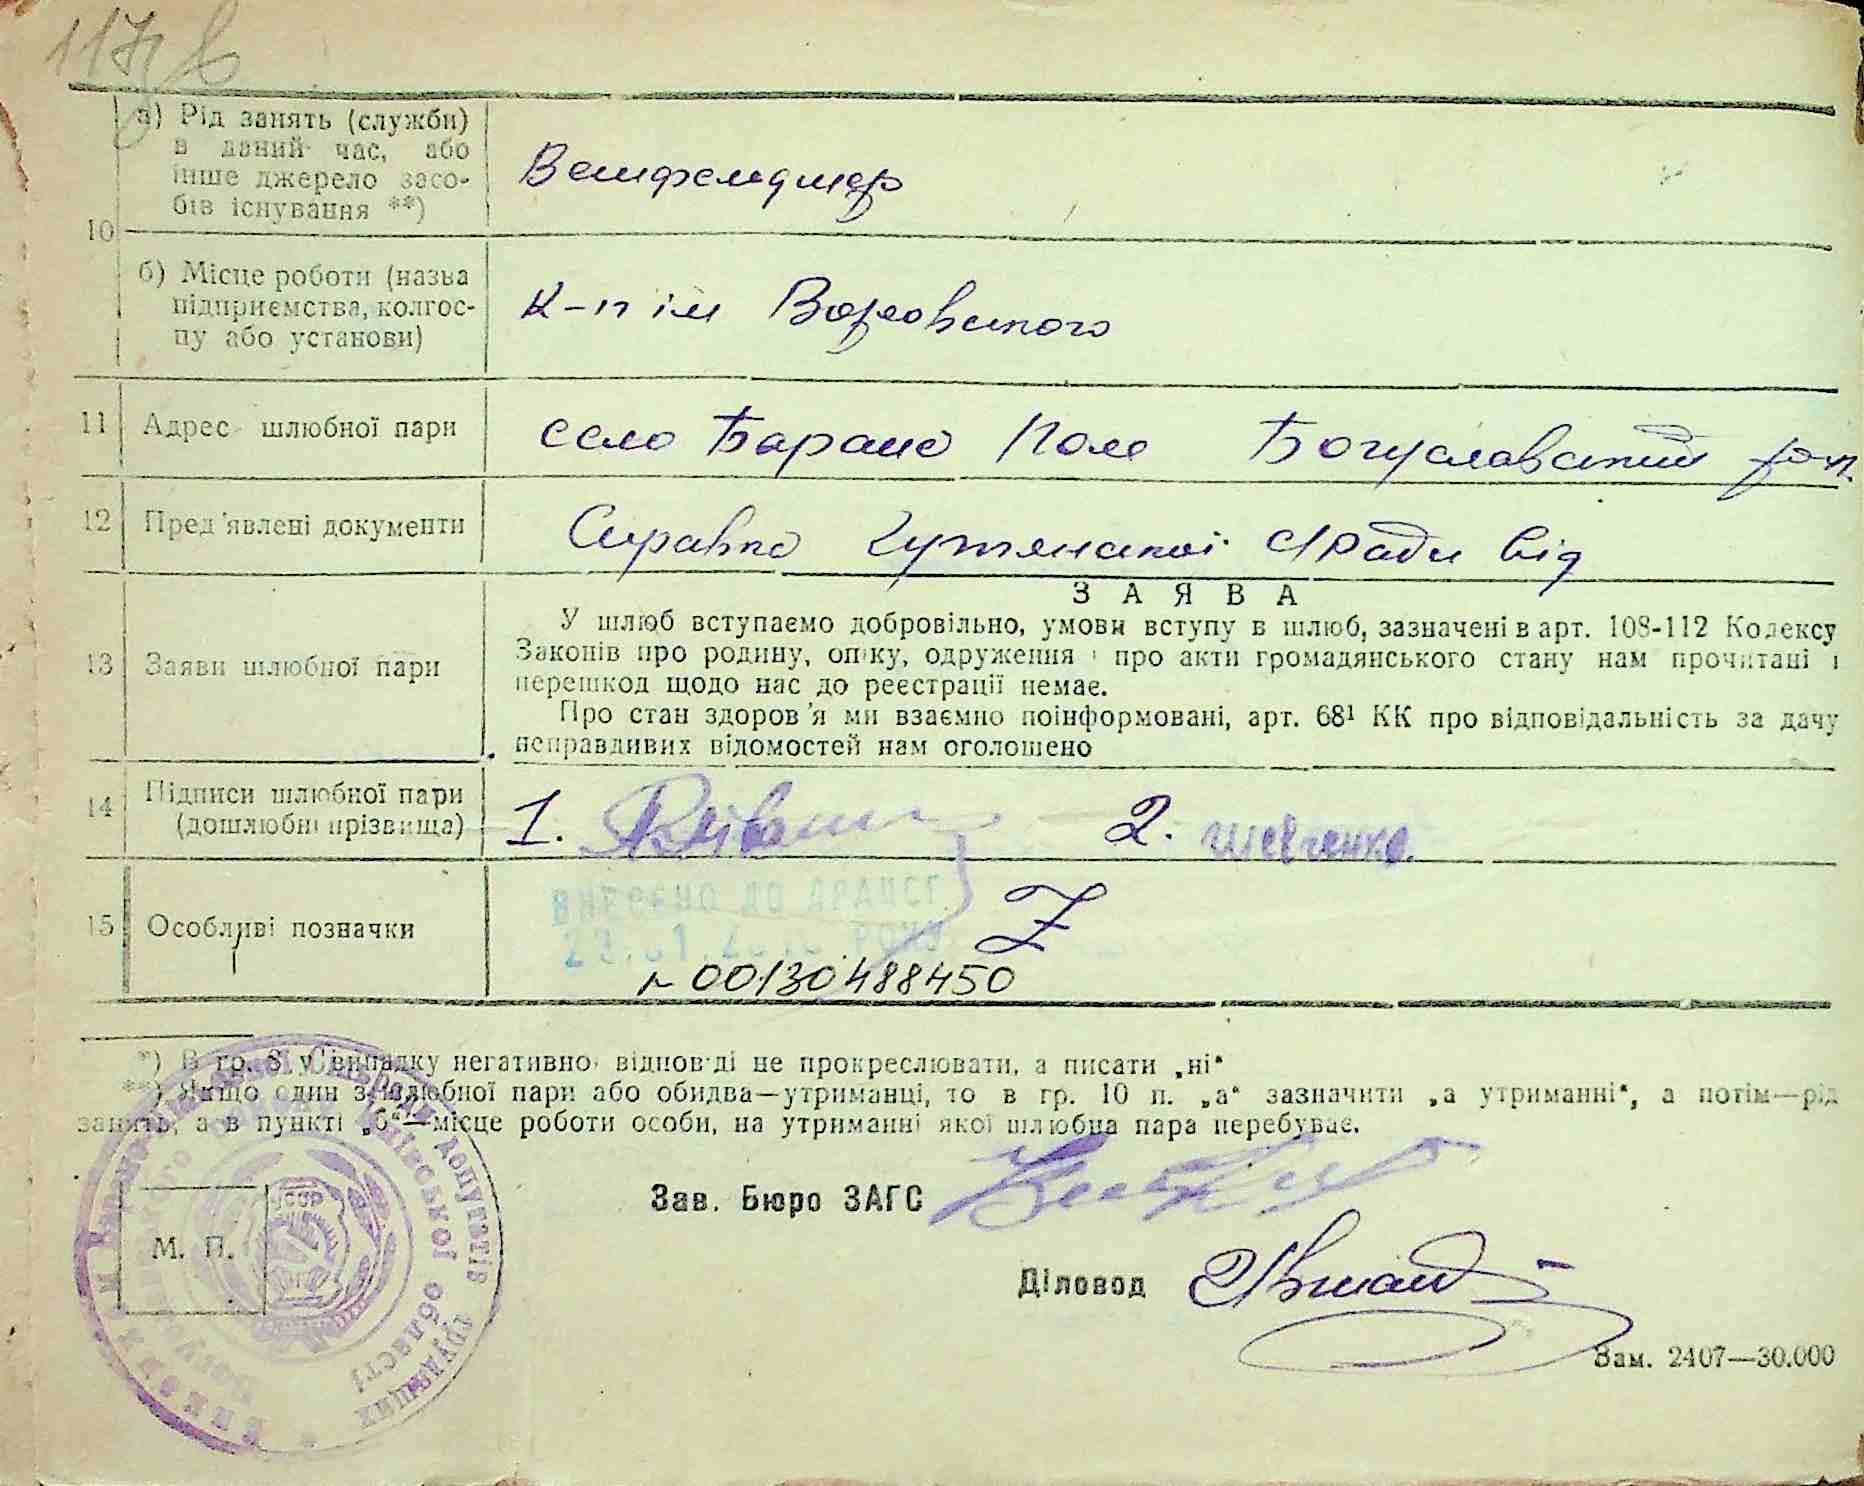 117
10
а) Рід занять (служби)
в даний час, або
інше джерело засо-
бів існування **)
Ветфельдшер
б) Місце роботи (назва
підприємства, колгос-
пу або установи)
К-п ім Воровського
11 Адрес шлюбної пари
село Бараньє Поле Богуславський р-н.
12 Пред'явлені документи
Справка с/Ради від
13 Заяви шлюбної пари
ЗАЯВА
У шлюб вступаємо добровільно, умови вступу в шлюб, зазначені в арт. 108-112 Кодексу
Законів про родину, опіку, одруження і про акти громадянського стану нам прочитані і
перешкод щодо нас до реєстрації немає.
Про стан здоров'я ми взаємно поінформовані, арт. 68¹ КК про відповідальність за дачу
неправдивих відомостей нам оголошено
14 Підписи шлюбної пари
(дошлюбні прізвища)
1. 2. Шевченко.
15 Особливі позначки
ВНЕСЕНО ДО ДРАЦСГ
РОКУ
Z
№ 00130488450
*) В гр. 8 у випадку негативної відповіді не прокреслювати, а писати „ні“
**) Якщо один з шлюбної пари або обидва—утриманці, то в гр. 10 п. „а“ зазначити „а утриманні“, а потім—рід
занять, а в пункті „б“—місце роботи особи, на утриманні якої шлюбна пара перебуває.
М. П.
УССР
депутатів трудящих
Київської області
Зав. Бюро ЗАГС
Діловод
Зам. 2407—30.000